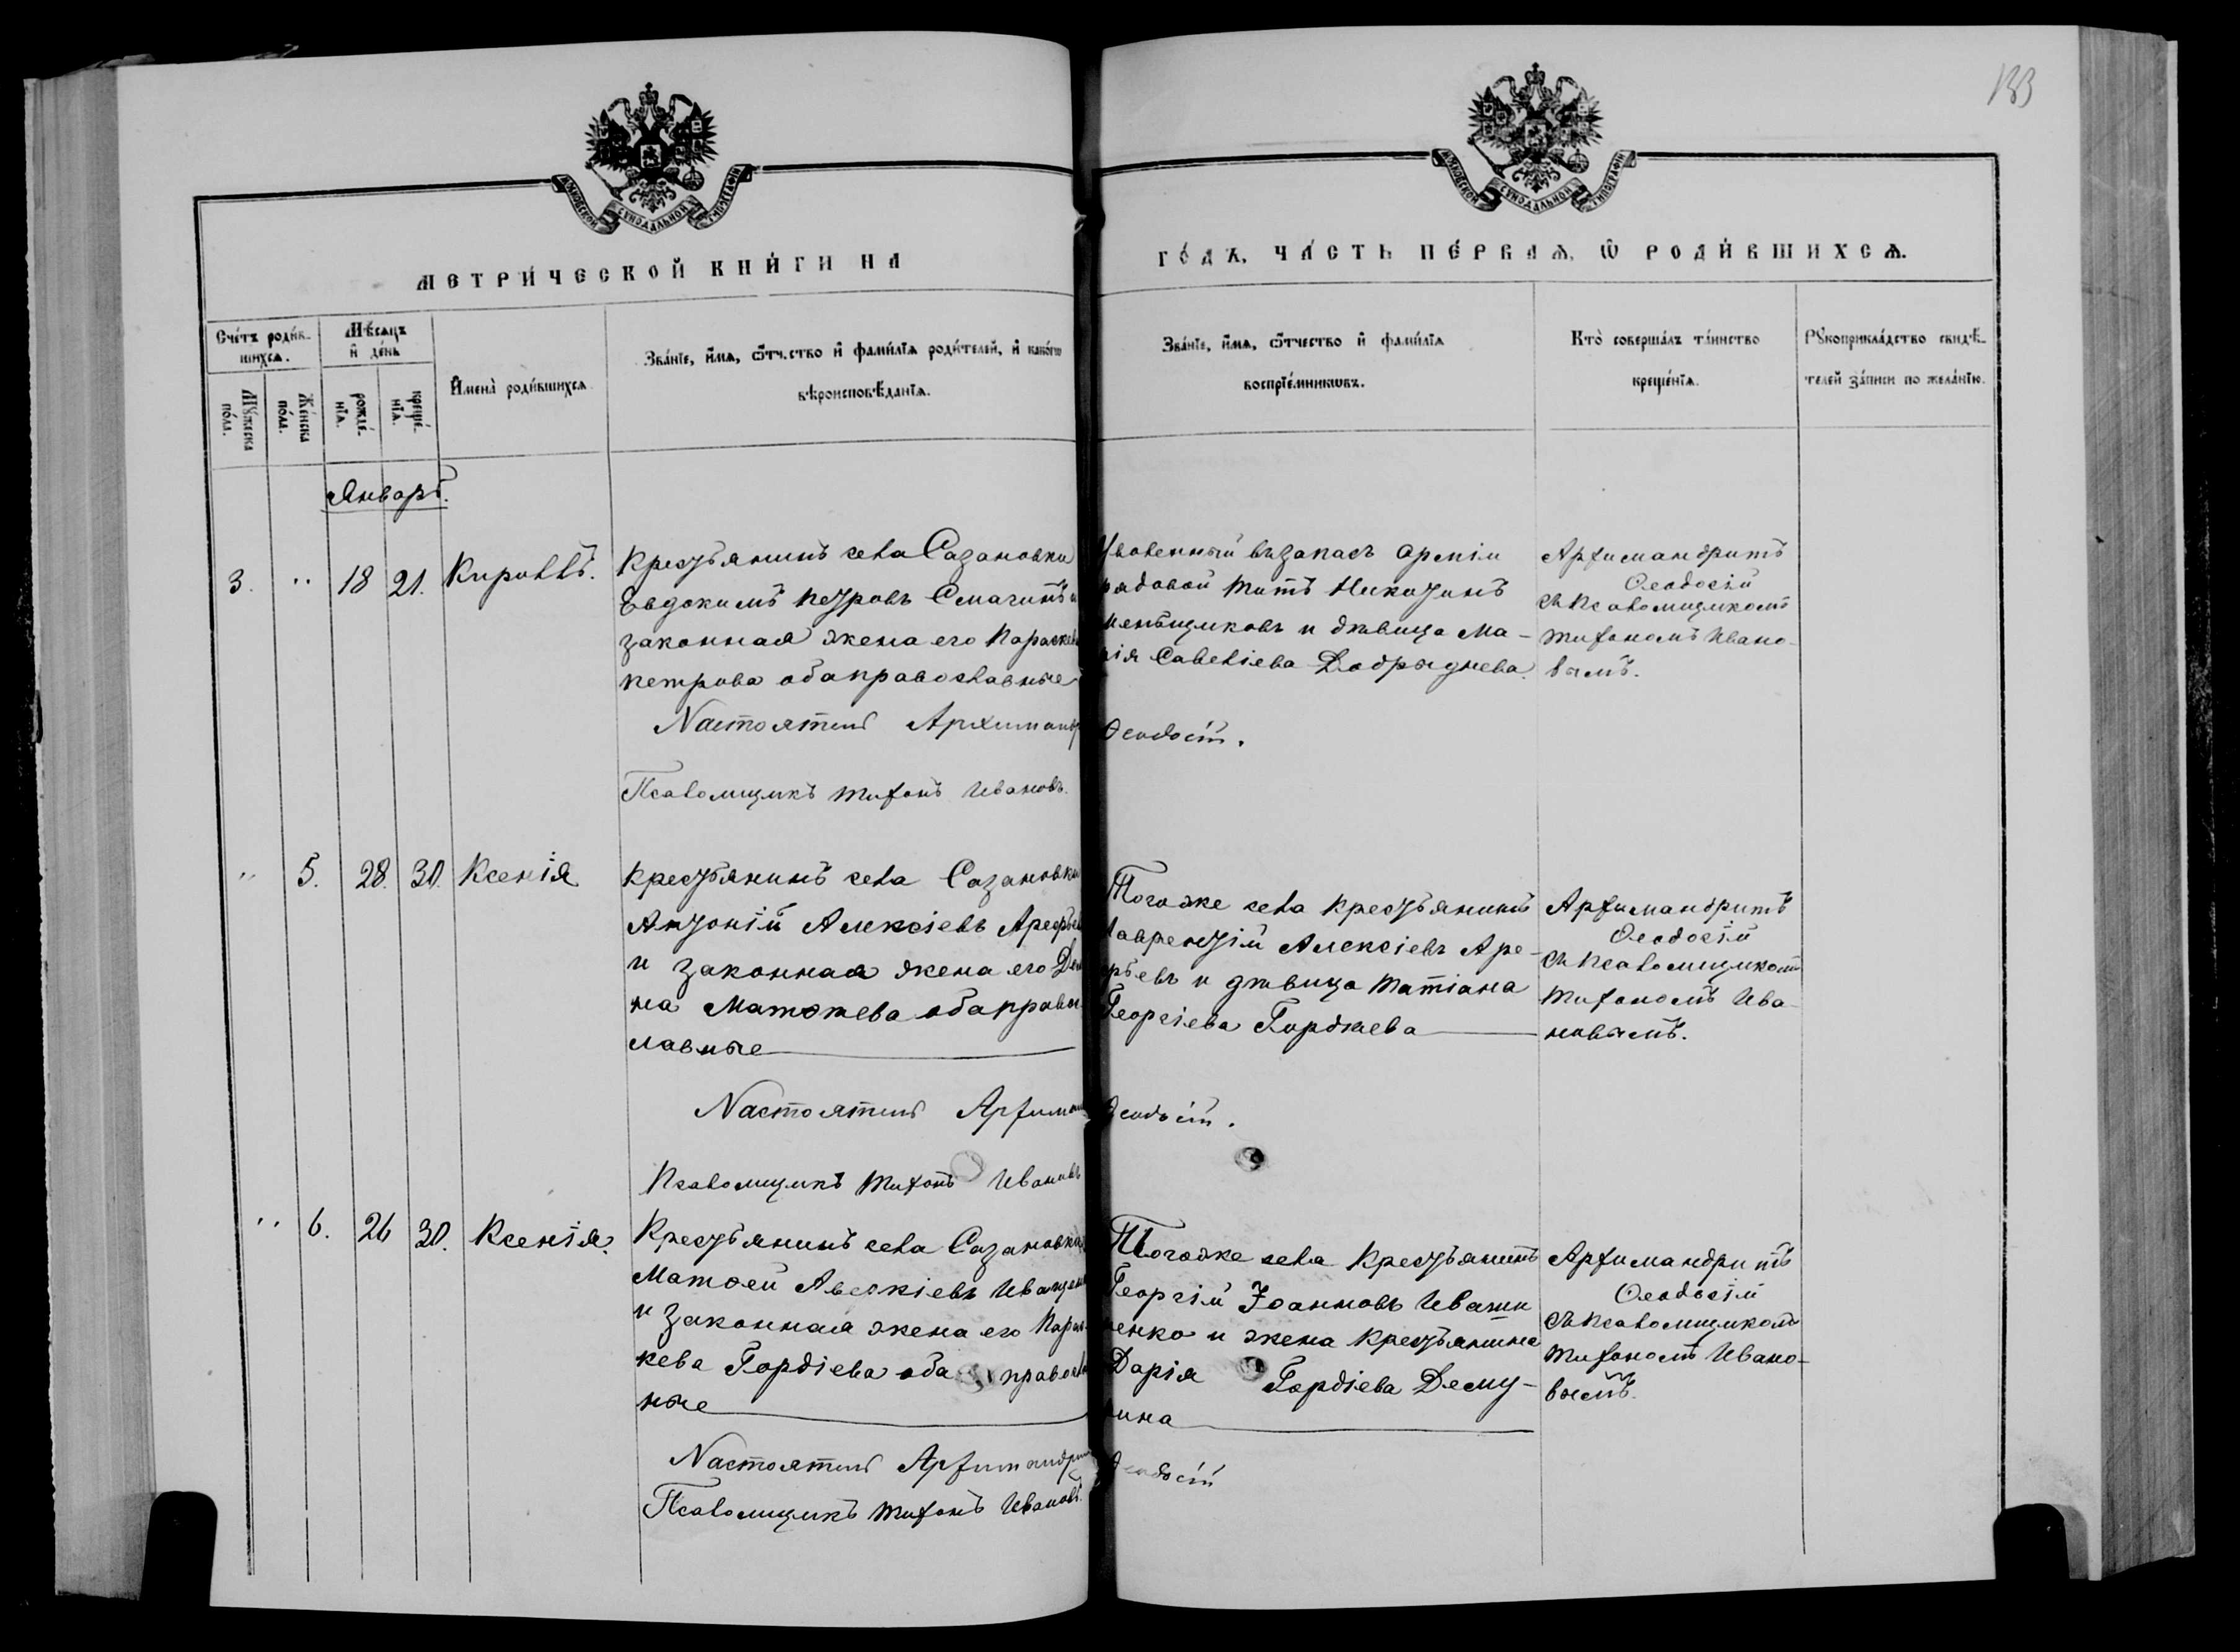 133
МОСКОВСКОЙ СѴНОДАЛЬНОЙ ТИПОГРАФІИ
МОСКОВСКОЙ СѴНОДАЛЬНОЙ ТИПОГРАФІИ
МЕТРИ́ЧЕСКОЙ КНИ́ГИ НА
ГО́ДЪ, ЧА́СТЬ ПЕ́РВАѦ, Ѿ РОДИ́ВШИХСѦ.
Сче́тъ роди́в-
шихсѧ.
Мѣ́сѧцъ
и҆ де́нь
Му́жеска
по́ла.
Же́нска
по́ла.
рожде́-
нїѧ.
креще́-
нїѧ.
И҆мена̀ роди́вшихсѧ
Зва́нїе, и҆́мѧ, ѻ҆́тчество и҆ фами́лїѧ роди́телей, и҆ како́гѡ
вѣроисповѣ́данїѧ.
Зва́нїе, и҆́мѧ, ѻ҆́тчество и҆ фами́лїѧ
воспрїе́мникѡвъ.
Кто̀ соверша́лъ та́инство
креще́нїѧ.
Рꙋкоприкла́дство свидѣ́-
телей за́писи по жела́нїю.
Январь.
3. " 18 21. Кириллъ.
Крестьянинъ села Сазановки
Евдокимъ Петровъ Смагинъ и
законная жена его Параскева
Петрова оба православные
Уволенный въ запасъ арміи
рядовой Титъ Никитинъ
Меньщиковъ и дѣвица Ма-
рія Савеліева Добрыднева.
Архимандритъ
Ѳеодосій
съ Псаломщикомъ
Тихономъ Ивано-
вымъ.
Настоятель Архимандр
Ѳеодосій.
Псаломщикъ Тихонъ Ивановъ.
" 5. 28. 30. Ксенія
Крестьянинъ села Сазановки
Антоній Алексіевъ Арефьев
и законная жена его
на Матѳеева оба правос
лавные
Тогоже села Крестьянинъ
Лаврентій Алексіевъ Аре-
фьевъ и дѣвица Татіана
Георгіева Гордѣева
Архимандритъ
Ѳеодосій
съ Псаломщикомъ
Тихономъ Ива-
новымъ.
Настоятель Архиман
Ѳеодосій.
Псаломщикъ Тихонъ Ивановъ
" 6. 26 30. Ксенія.
Крестьянинъ села Сазановки
Матѳей Аверкіевъ Иващен
и законная жена его Парас
кева Гордіева оба православ
ные
Тогоже села Крестьянинъ
Георгій Іоанновъ Иващ
енко и жена Крестьянина
Дарія Гордіева Дему-
рина
Архимандритъ
Ѳеодосій
съ Псаломщикомъ
Тихономъ Ивано-
вымъ.
Настоятель Архимандри
Ѳеодосій
Псаломщикъ Тихонъ Ивановъ.